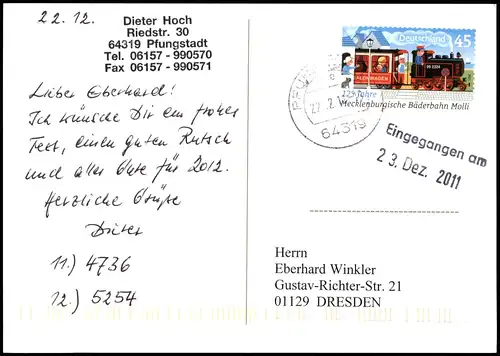 22.12.
Dieter Hoch
Riedstr. 30
64319 Pfungstadt
Tel. 06157 - 990570
Fax 06157 - 990571
Lieber Eberhard!
Ich wünsche Dir ein frohes
Fest, einen guten Rutsch
und alles Gute für 2012.
Herzliche Grüße
Dieter
11.) 4736
12.) 5254
Deutschland 45
SALONWAGEN
125 Jahre
Mecklenburgische Bäderbahn Molli
64319
Eingegangen am
23. Dez. 2011
Herrn
Eberhard Winkler
Gustav-Richter-Str. 21
01129 DRESDEN